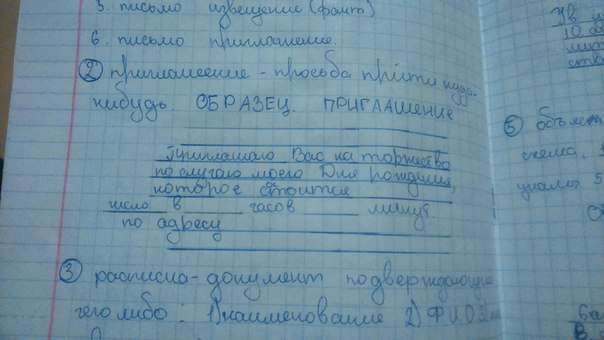 5. письмо извещение (факт)
6. письмо приглашение.
② приглашение - просьба прийти куда-
нибудь. ОБРАЗЕЦ. ПРИГЛАШЕНИЕ
Приглашаю Вас на торжество
по случаю моего Дня рождения,
которое состоится
число в часов минут
по адресу
③ расписка - документ подверждающие
чего либо: 1) наименование 2) ФИО
10
⑤ объясн
схема.
5